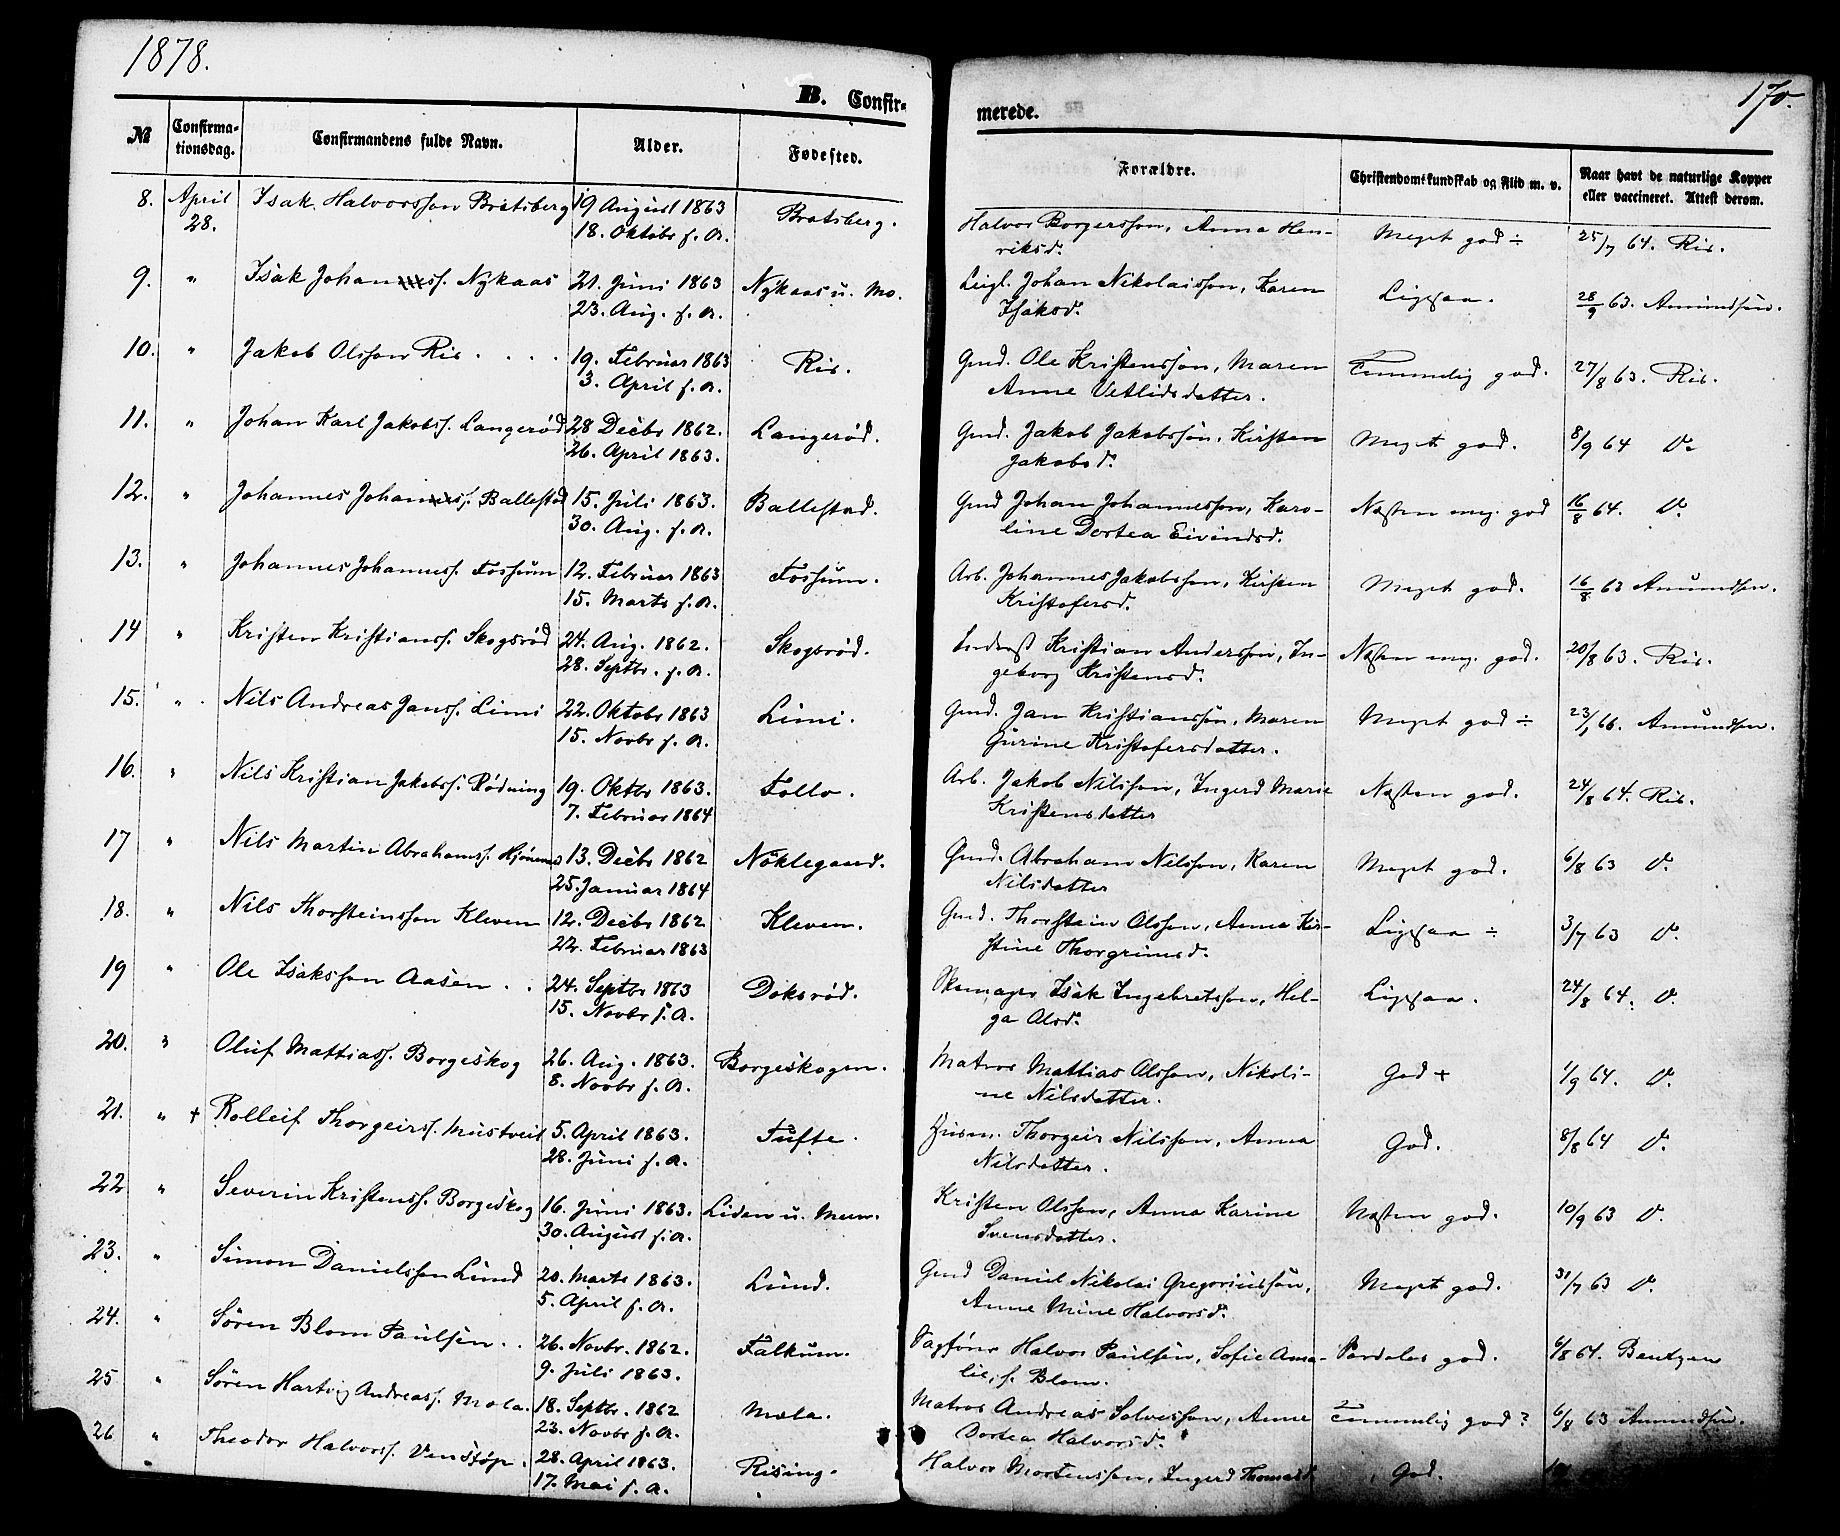 1878.
170.
B. Confir-
merede.
№
Confirma-
tionsdag.
Confirmandens fulde Navn.
Alder.
Fødested.
Forældre.
Christendomskundskab og Flid m. v.
Naar havt de naturlige Kopper
eller vaccineret. Attest derom.
8. April Isak Halvorsson Bratsberg 19 August 1863 Bratsberg. Halvor Borgersson, Anna Hen- Meget god ÷ 25/7 64. Ris.
28. 18. Oktobr s. A. riksd.
9. " Isak Johans. Nykaas 21. Juni 1863 Nykaas u. Mo. Leigl. Johan Nikolaisson, Karen Ligesaa. 28/9 63. Amundsen.
23. Aug. s. A. Isaksd.
10. " Jakob Olsson Ris . . . . 19. Februar 1863 Ris. Gmd. Ole Kristensson, Maren Temmelig god. 27/8 63. Ris.
3. April s. A. Anne Vetlidsdatter.
11. " Johan Karl Jakobss. Langerød 28 Decbr 1862. Langerød. Gmd. Jakob Jakobsson, Kirsten Meget god. 8/9 64 D.
26. April 1863. Jakobsd.
12. " Johannes Johans. Ballestad 15. Juli 1863. Ballestad. Gmd Johan Johannesson, Karo- Næsten meg. god 16/8 64. D.
30. Aug. s. A. line Dortea Eivindsd.
13. " Johannes Johanness. Fossum 12. Februar 1863 Fossum. Arb. Johannes Jakobsson, Kirsten Meget god. 16/8 63 Amundsen.
15. Marts s. A. Kristofersd.
14 " Kristen Kristianss. Skogsrød 24. Aug. 1862. Skogsrød. Kristian Andersson, In- Næsten meg. god. 20/8 63. Ris.
28. Septbr. s. A. geborg Kristensd.
15. " Nils Andreas Janss. Limi 22. Oktobr 1863 Limi. Gmd. Jan Kristiansson, Maren Meget god ÷ 23/1 66. Amundsen.
15. Novbr s. A. Gurine Kristofersdatter.
16. " Nils Kristian Jakobss. Rødning 19. Oktbr 1863. Follo. Arb. Jakob Nilsson, Ingerd Marie Næsten god. 24/8 64. Ris.
7. Februar 1864 Kristensdatter
17 " Nils Martin Abrahams. Hjønnes 13. Decbr 1862 Nøklegaard. Gmd. Abraham Nilsson, Karen Meget god. 6/8 63 D.
25. Januar 1864 Nilsdatter
18. " Nils Thorsteinsson Kleven 12. Decbr 1862 Kleven. Gmd. Thorstein Olsson, Anna Kir- Ligesaa ÷ 3/7 63 D.
22. Februar 1863 stine Thorgrimsd.
19 " Ole Isaksson Aasen . . 24. Septbr 1863 Doksrød. Skomager Isak Ingebretsson, Hel- Ligesaa. 24/8 64. D.
15. Novbr s. A. ga Olsd.
20. " Oluf Mattiass. Borgeskog 26. Aug. 1863. Borgeskogen. Matros Mattias Olsson, Nikoli- God + 1/9 64. D.
8. Novbr s. A. ne Nilsdatter.
21. " + Rolleif Thorgeirss. Mustveit 5. April 1863. Tufte. Husm. Thorgeir Nilsson, Anna God. 8/8 64 D.
28. Juni s. A. Nilsdatter.
22 " Severin Kristenss. Borgeskog 16. Juni 1863. Liden u. Meen. Kristen Olsson, Anna Karine Næsten god. 10/9 63 D.
30. August s. A. Svensdatter.
23. " Simon Danielsson Lund 20. Marts 1863. Lund. Gmd Daniel Nikolai Gregoriusson, Meget god. 31/7 63 D.
5. April s. A. Anne Mine Halvorsd.
24. " Søren Blom Paulsen . . 26. Novbr. 1862. Falkum. Fagfører Halvor Paulsen, Sofie Ama- Særdeles god. 6/8 64. Bentzen
9. Juli 1863. lie, f. Blom.
25 " Søren Hartvig Andreass. Mæla. 18. Septbr. 1862 Mæla. Matros Andreas Solvesson, Anne Temmelig god? 6/8 63 Amundsen.
23. Novbr s. A. Dortea Halvorsd.
26 " Theodor Halvorss. Venstøp. 28. April 1863. Rising. Halvor Mortensson, Ingerd Thomasd. God.
17. Mai s. A.